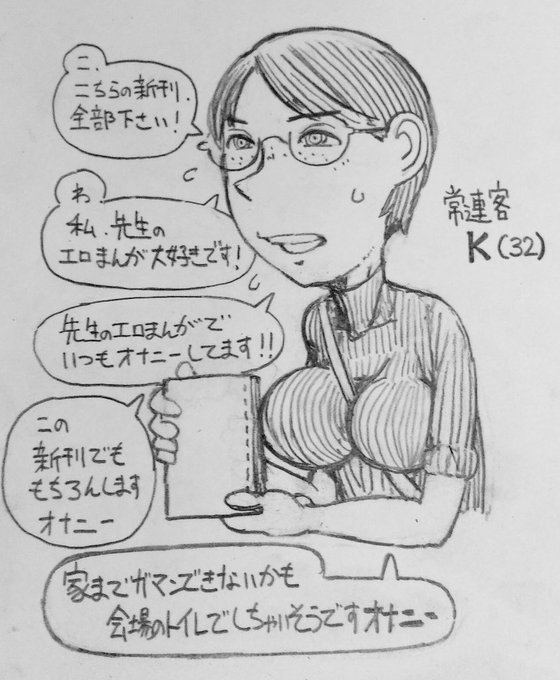 こ、
こちらの新刊、
全部下さい!
わ
私、先生の
エロまんが大好きです!
先生のエロまんがで
いつもオナニーしてます!!
この
新刊でも
もちろんします
オナニー
家までガマンできないかも
会場のトイレでしちゃいそうですオナニー
常連客
K(32)